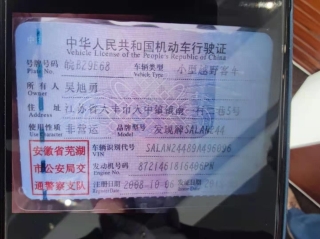 中华人民共和国机动车行驶证
Vehicle License of the People's Republic of China
号牌号码 皖B29E68 车辆类型 小型越野客车
Plate No. Vehicle Type
所有人 吴旭勇
Owner
住址 江苏省大丰市大中镇
Address
使用性质 非营运 品牌型号 发现牌SALAN244
车辆识别代号 SALAN24489A496096
VIN
发动机号码
Engine No.
注册日期 2008-10-06 发证日期
安徽省芜湖
市公安局交
通警察支队